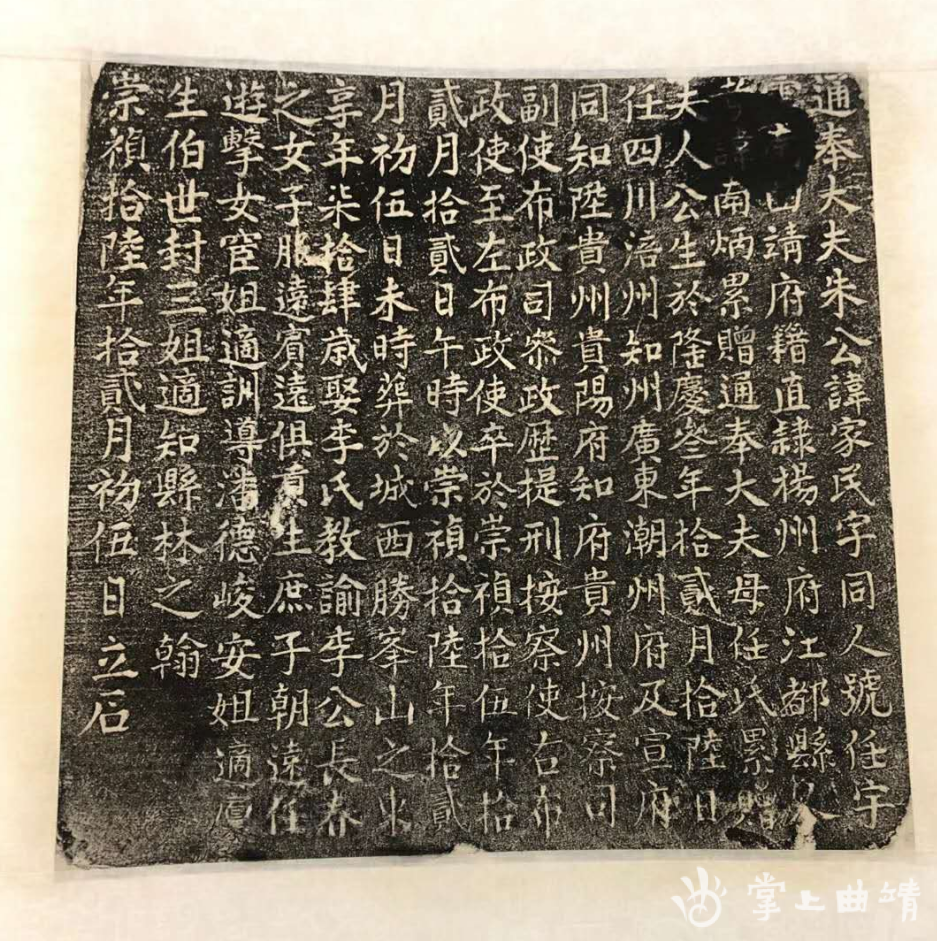 通奉大夫朱公諱家民字同人號任宇
南山靖府籍直隸揚州府江都縣人
考諱南炳累贈通奉大夫母任氏累贈
夫人公生於隆慶叁年拾貳月拾陸日
任四川涪州知州廣東潮州府及宣府
同知陞貴州貴陽府知府貴州按察司
副使布政司叅政歷提刑按察使右布
政使至左布政使卒於崇禎拾伍年拾
貳月拾貳日午時以崇禎拾陸年拾貳
月初伍日未時葬於城西勝峯山之東
享年柒拾肆歲娶李氏教諭李公長春
之女子服遠賓遠俱貢生庶子朝遠任
遊擊女宦姐適訓導潘德峻安姐適
生伯世封三姐適知縣林之翰
崇禎拾陸年拾貳月初伍日立石
掌上曲靖